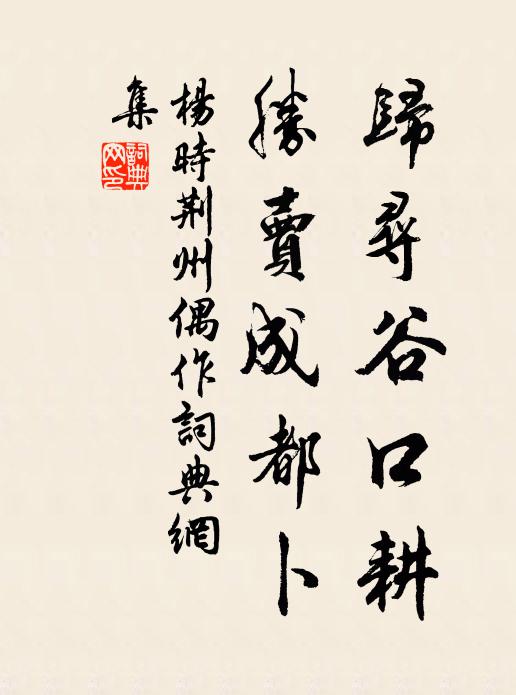 歸尋谷口耕
勝賣成都卜
楊時荆州偶作詞典網
集
詞典網印